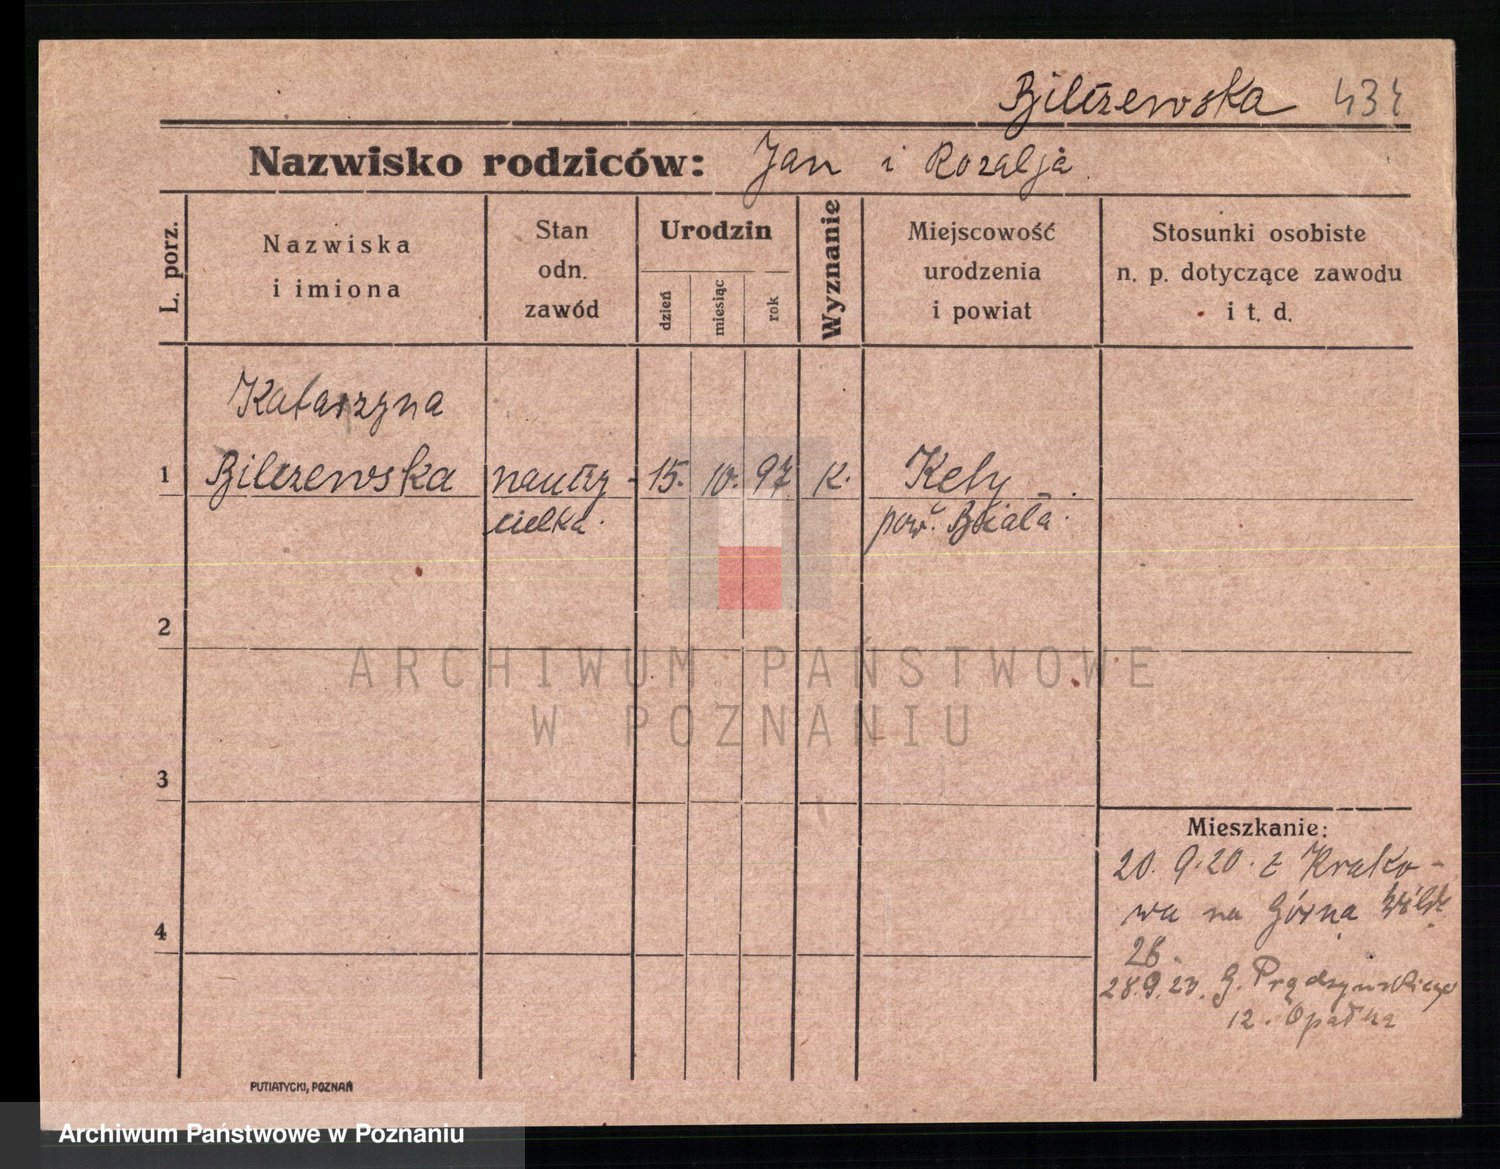 Bilczewska 434
Nazwisko rodziców: Jan i Rozalja
L. porz.
Nazwiska
i imiona
Stan
odn.
zawód
Urodzin
dzień
miesiąc
rok
Wyznanie
Miejscowość
urodzenia
i powiat
Stosunki osobiste
n. p. dotyczące zawodu
i t. d.
Katarzyna
1 Bilczewska nauczy- 15. 10. 97 K. Kęty
cielka. pow. Biała.
2
ARCHIWUM PAŃSTWOWE
W POZNANIU
3
Mieszkanie:
20. 9. 20. z Krako-
wa na Górna Wilda
4
26.
28.9.23. G. Prądzyńskiego
12. Opałka
PUTIATYCKI, POZNAŃ
Archiwum Państwowe w Poznaniu